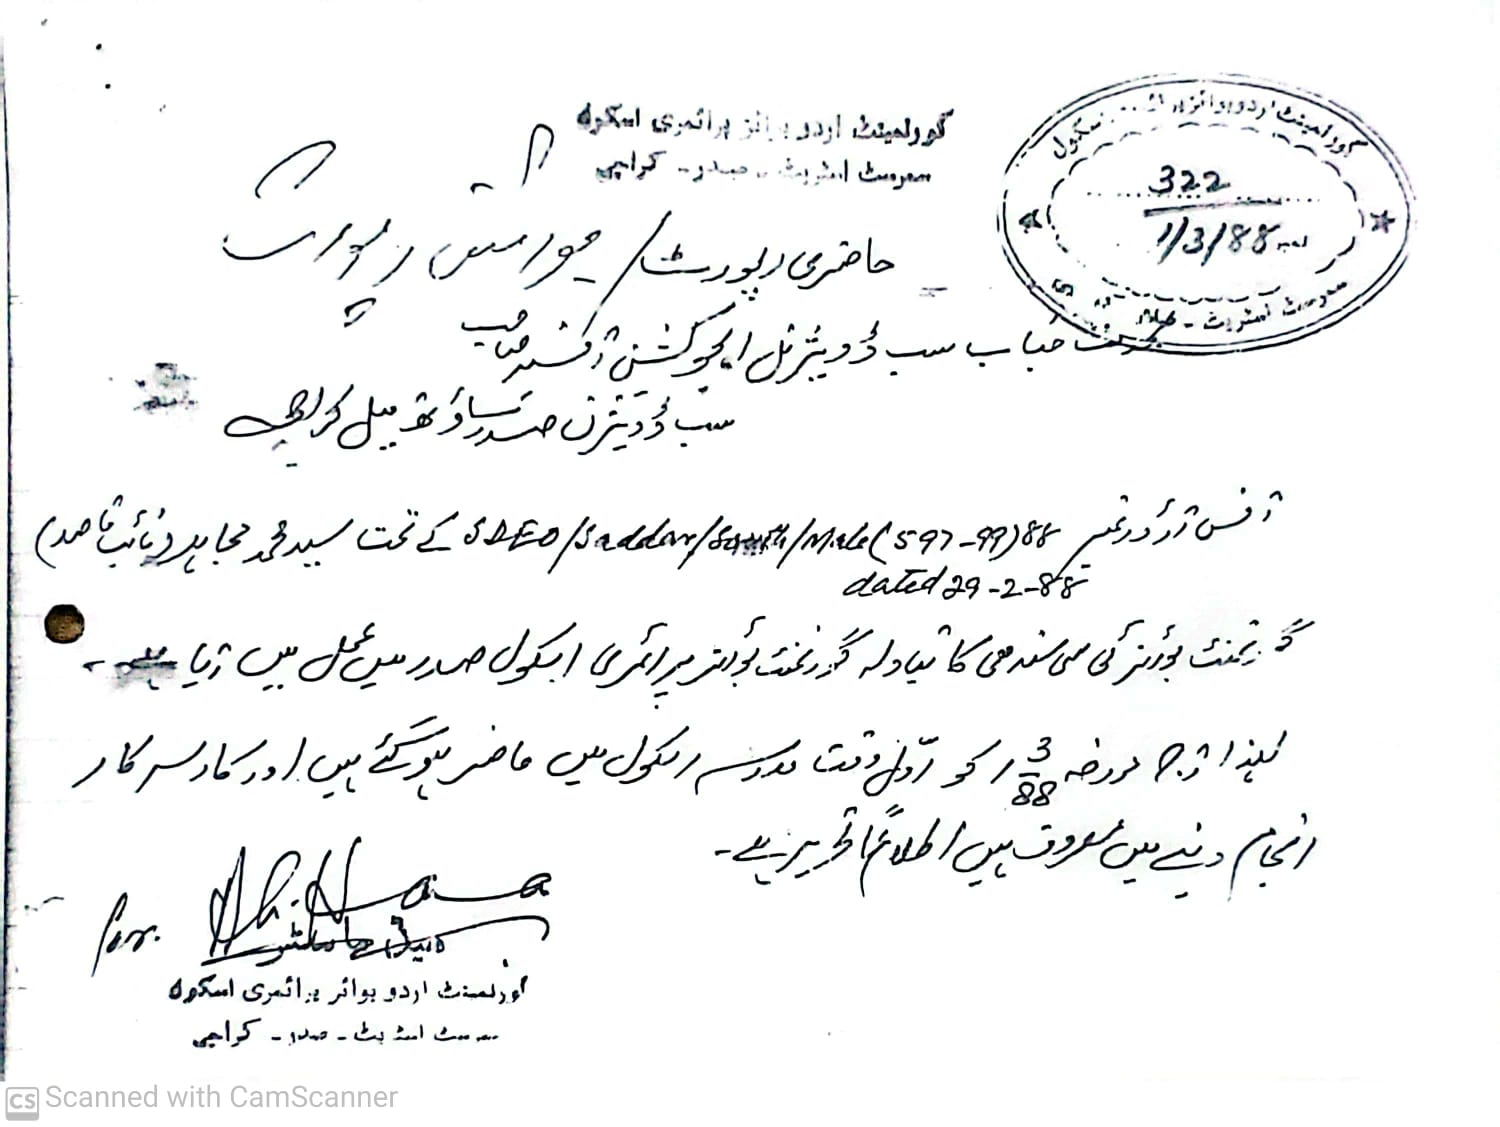 گورنمینٹ اردو بوائز پرائمری اسکول
سرمسٹ اسٹریٹ - صدر - کراچی
گورنمینٹ اردو بوائز پرائمری اسکول
322
1/3/88
حاضری رپورٹ / جوائننگ رپورٹ
بخدمت جناب سب ڈویژنل ایجوکیشن آفیسر صاحب
سب ڈویژن صدر ساؤتھ میل کراچی
آفس آرڈر نمبر SDEO/Saddar/South/Male(597-99)88 کے تحت سید محمد مجاہد (نائب قاصد)
dated 29-2-88
گورنمنٹ بوائز سندھی کا تبادلہ گورنمنٹ بوائز پرائمری اسکول صدر میں عمل میں آیا ہے۔
لہذا آج مورخہ 1 3/88 کو اول وقت مدرسہ اسکول میں حاضر ہو گئے ہیں اور کار سرکار
انجام دینے میں مصروف ہیں اطلاعاً تحریر ہے۔
For.
ہیڈ ماسٹر
گورنمینٹ اردو بوائز پرائمری اسکول
سرمسٹ اسٹریٹ - صدر - کراچی
CS Scanned with CamScanner